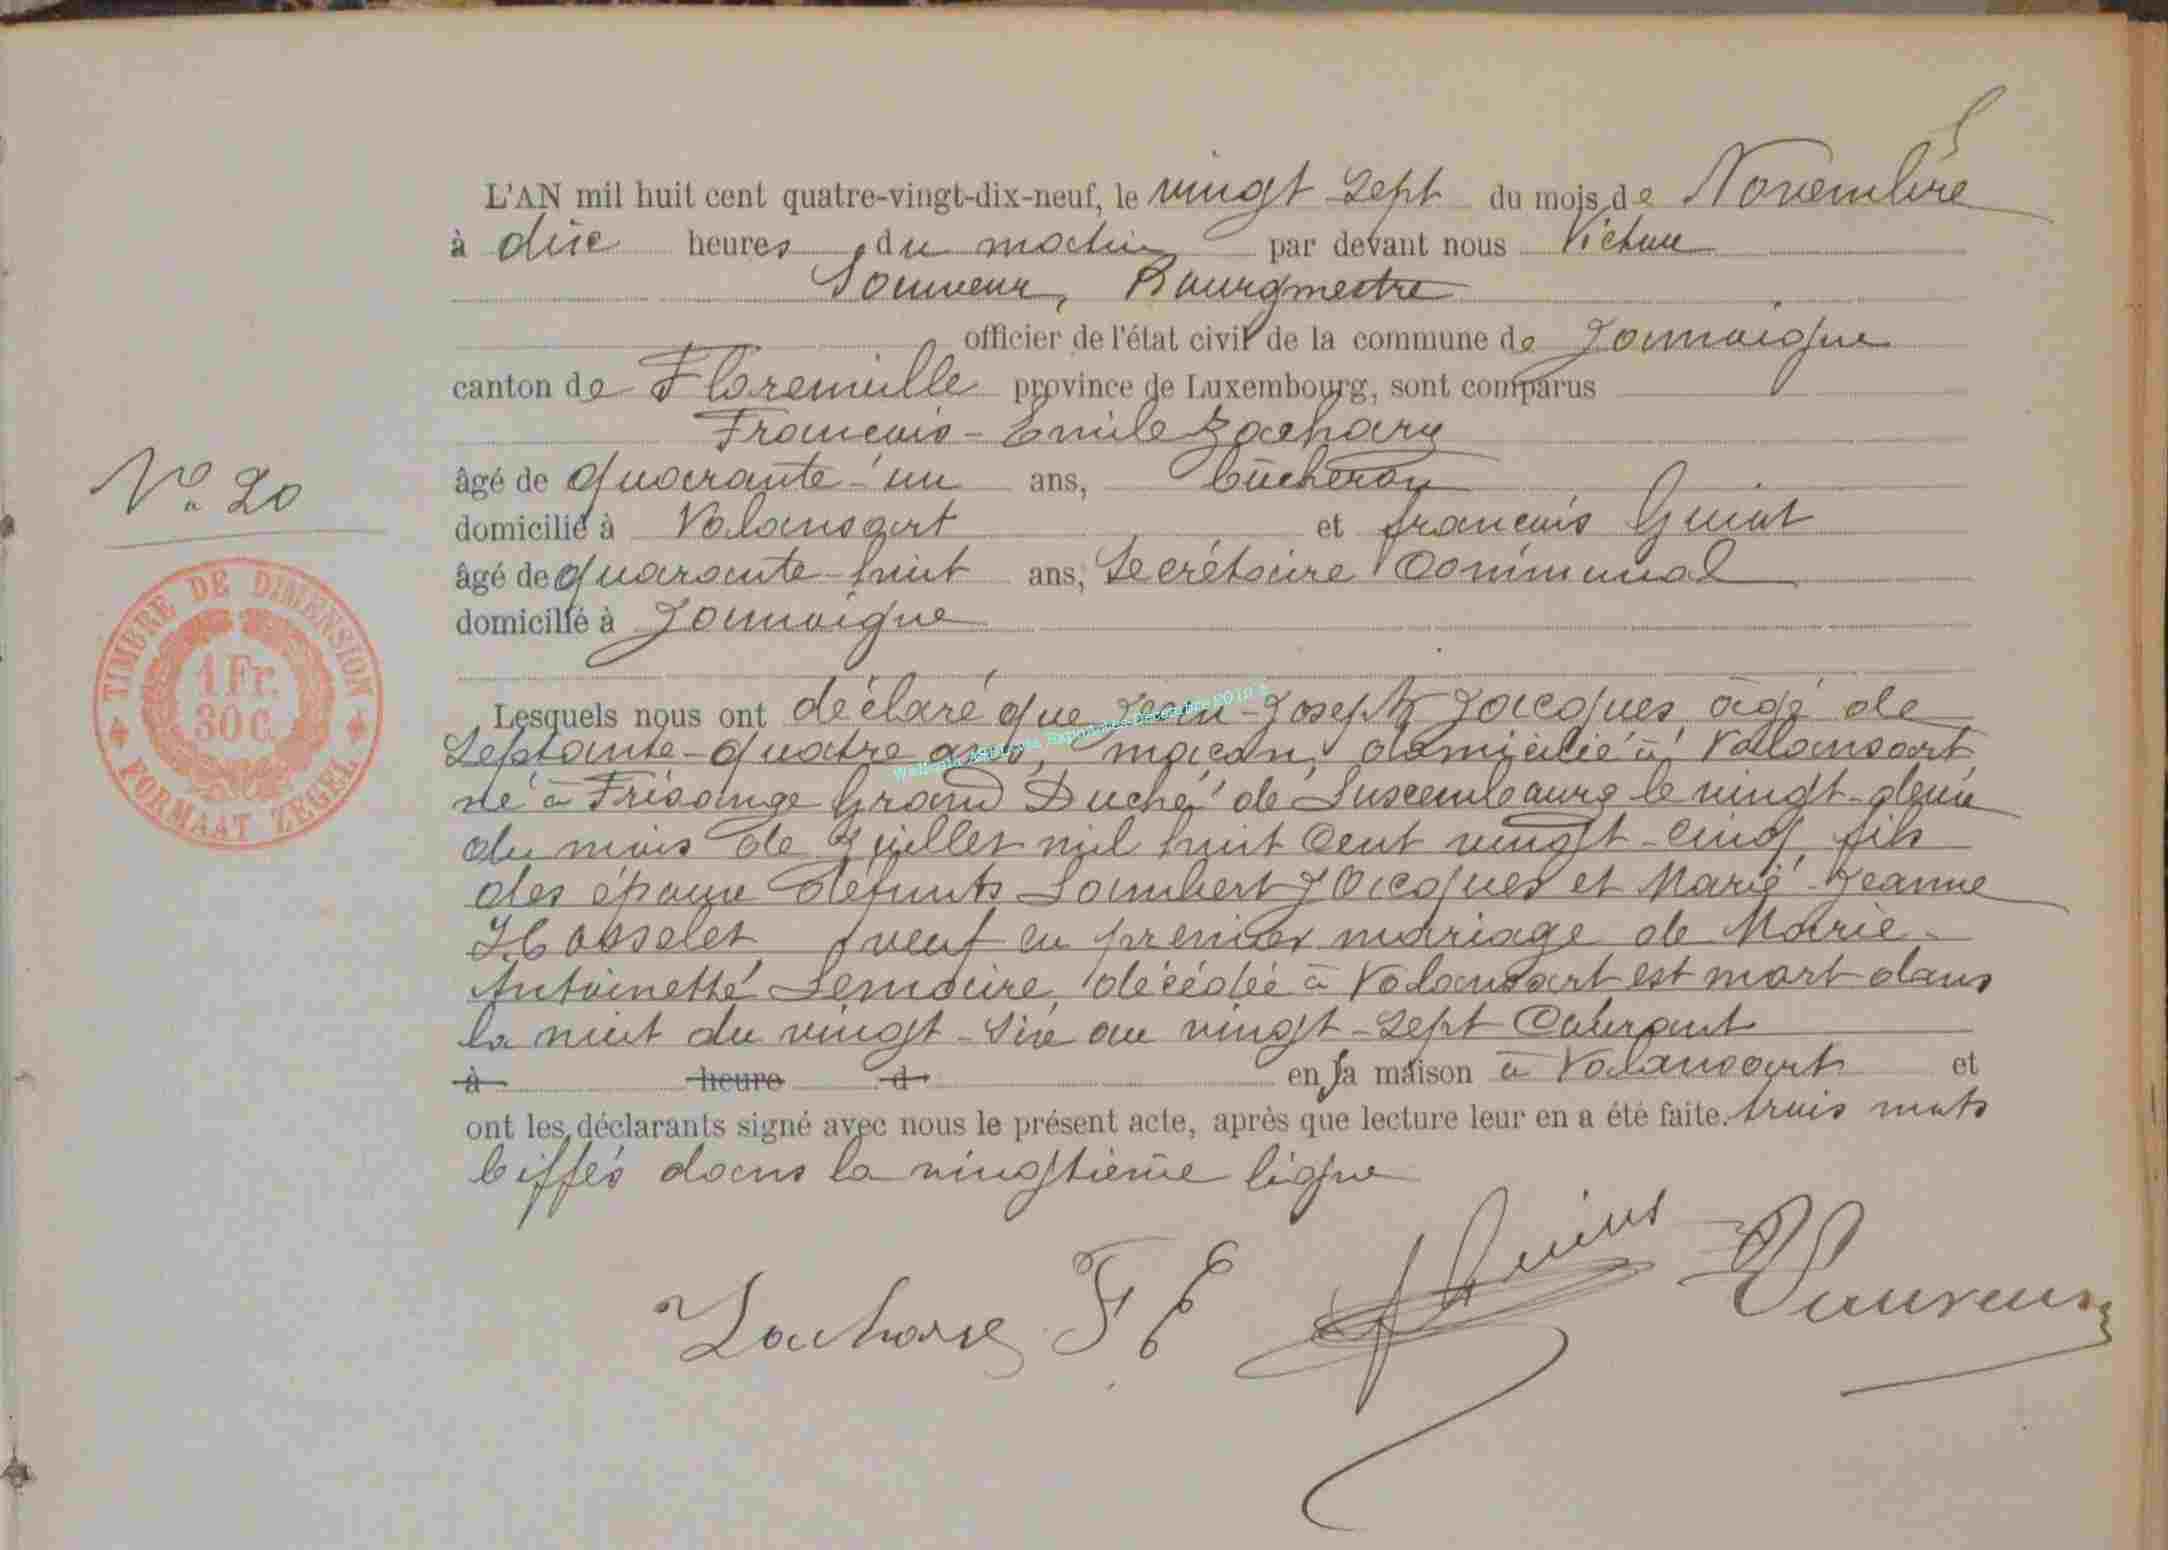 L'AN mil huit cent quatre-vingt-dix-neuf, le vingt sept du mois de Novembre
à dix heures du matin par devant nous Victor
Bourgmestre
officier de l'état civil de la commune de Jamoigne
canton de Florenville province de Luxembourg, sont comparus
François-Emile Zachary
âgé de quarante-un ans, bûcheron
domicilié à Valansart et françois Guiot
âgé de quarante-huit ans, Secrétaire Communal
domicilié à Jamoigne
N° 20
TIMBRE DE DIMENSION
1 Fr.
30 C.
FORMAAT ZEGEL
Lesquels nous ont déclaré que Jean-Joseph Jacques âgé de
Septante-quatre ans, maçon, domicilié à Valansart
né à Frisange Grand Duché de Luxembourg le vingt-deux
du mois de Juillet mil huit Cent vingt-cinq, fils
des époux défunts Lambert Jacques et Marie-Jeanne
Hosselet, veuf en premier mariage de Marie-
Antoinette Lemaire, décédée à Valansart est mort dans
la nuit du vingt-six au vingt-sept Courant
à heure d en sa maison à Valansart et
ont les déclarants signé avec nous le présent acte, après que lecture leur en a été faite. trois mots
biffés dans la vingtième ligne
F E Guiot